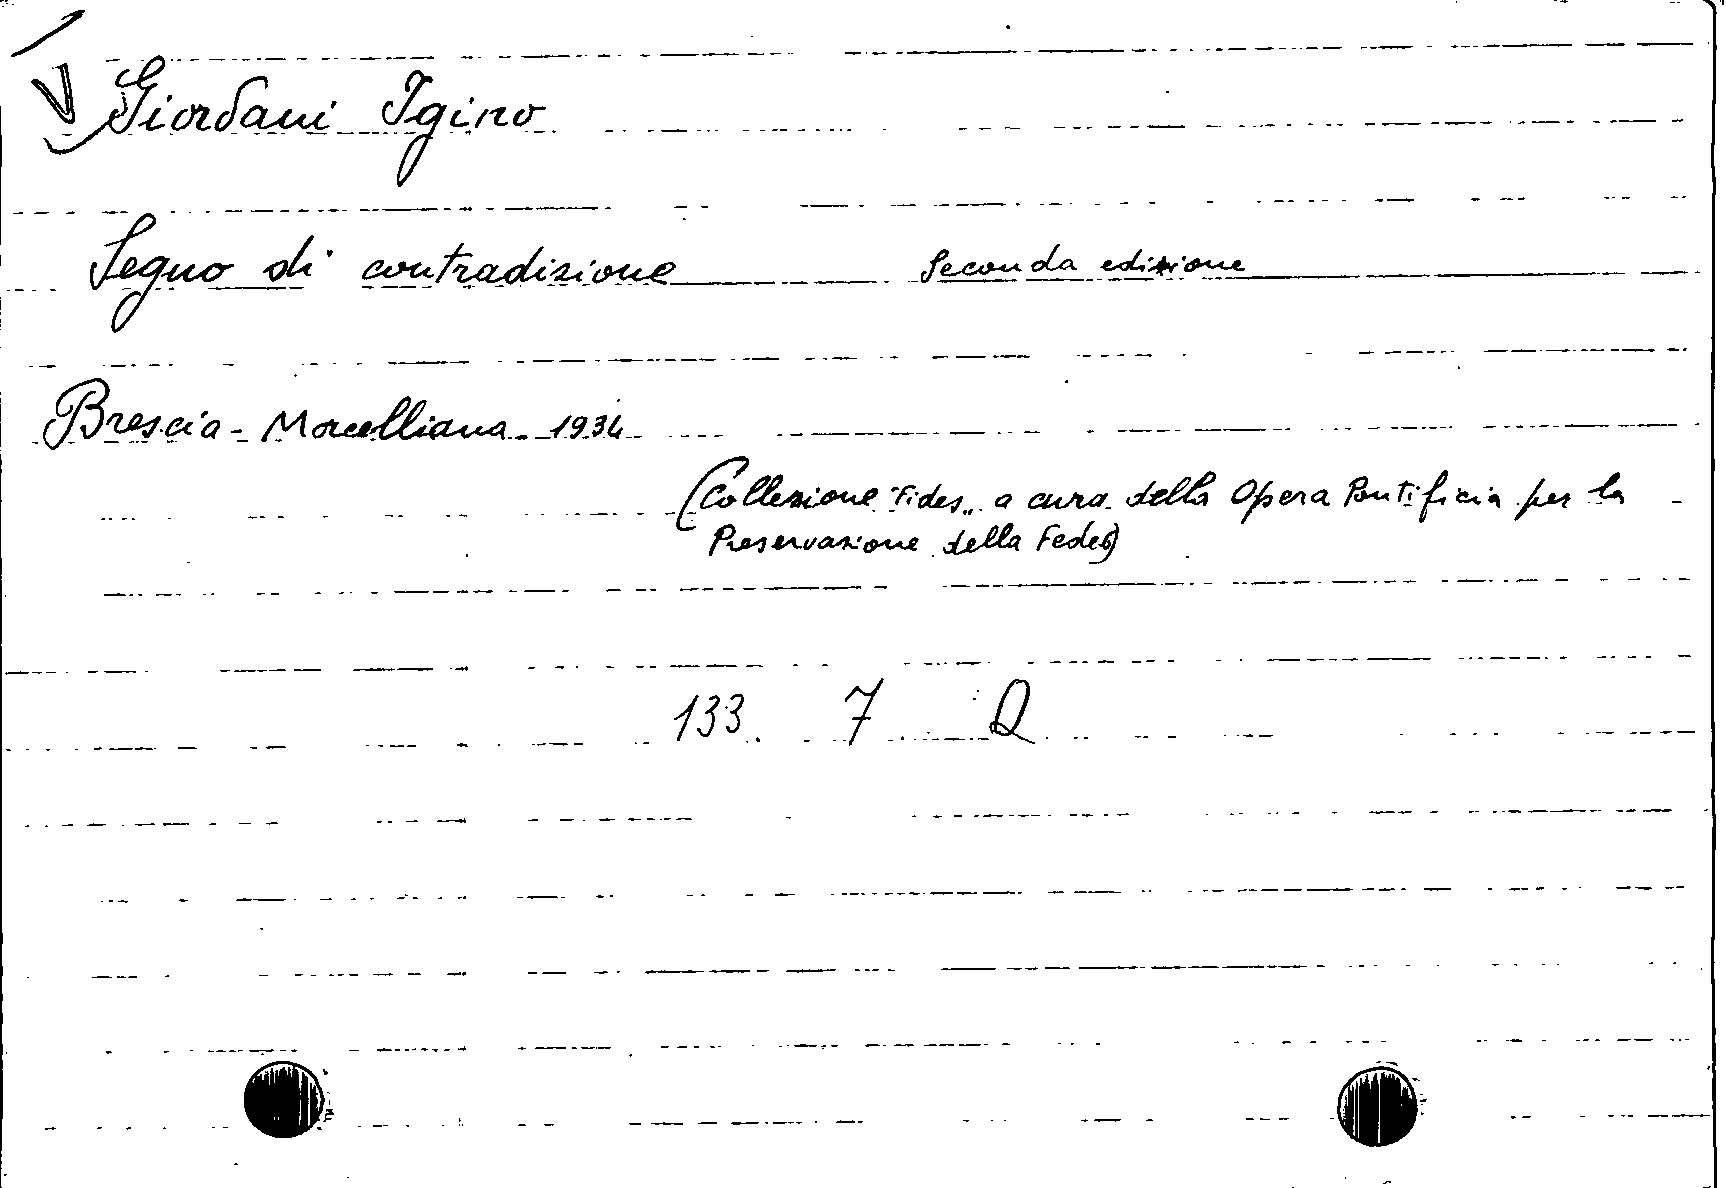 Giordani Igino
Segno di contradizione Seconda edizione
Brescia - Morcelliana - 1934
(Collezione "Fides" a cura della Opera Pontificia per la
Preservazione della Fede)
133 7 Q